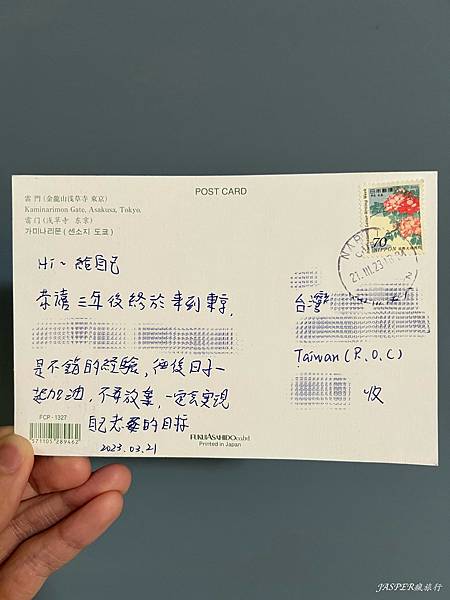 POST CARD
雷 門 (金龍山浅草寺 東京)
Kaminarimon Gate, Asakusa, Tokyo.
雷 门 (浅草寺 东京)
가미나리몬 ( 센소지 도쿄 )
日本郵便
70
NIPPON
NARITA
21.III.23
Hi~ 給自己
恭禧三年後終於來到東京,
是不錯的經驗, 往後日子一
起加油, 不要放棄, 一定會實現
自己想要的目標
2023.03.21
台灣
Taiwan (R.O.C)
收
FCP - 1327
571105 289462
FUKUI ASAHIDO co.ltd
Printed in Japan
JASPER瘋旅行